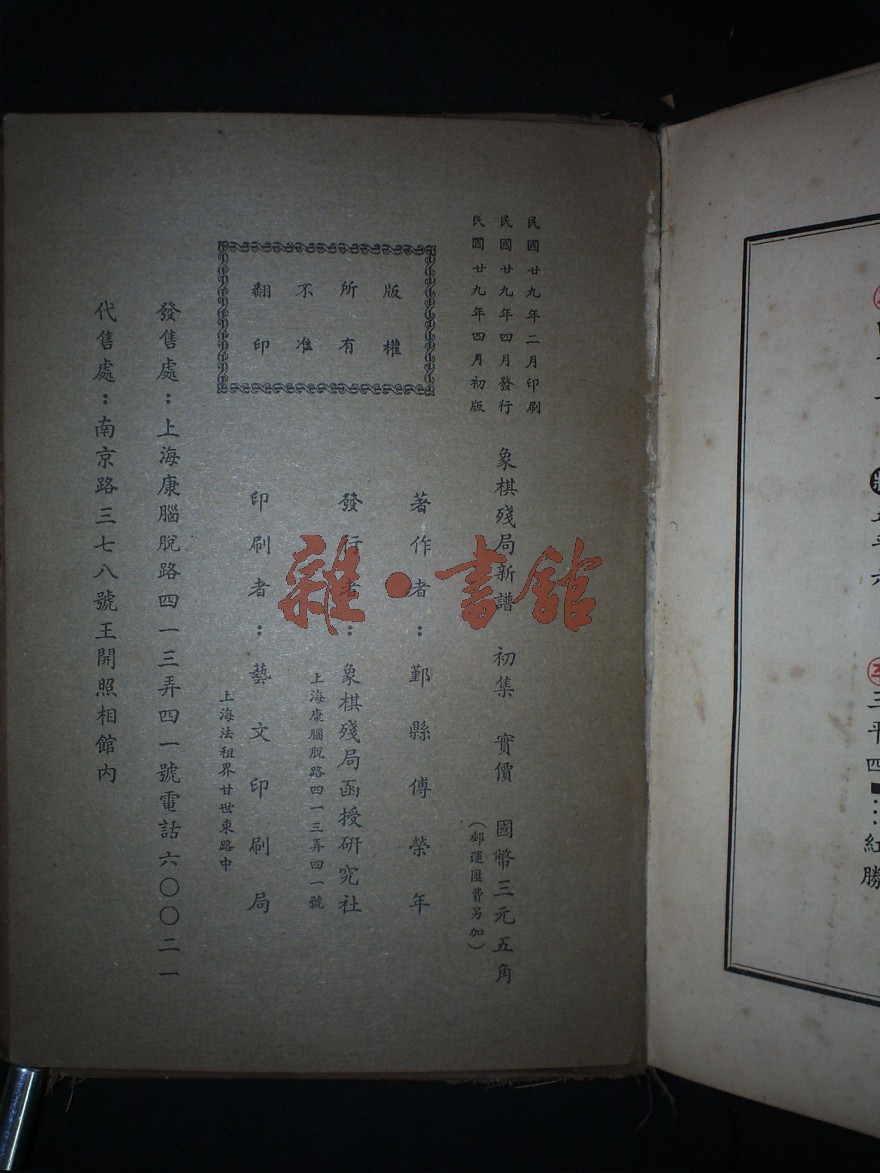 民國廿九年二月印刷
民國廿九年四月發行
民國廿九年四月初版
象棋殘局新譜 初集 實價 國幣三元五角
(郵運匯費另加)
版權
所有
不准
翻印
著作者:鄞縣傅榮年
發行者:象棋殘局函授研究社
上海康腦脫路四一三弄四一號
印刷者:藝文印刷局
上海法租界甘世東路中
發售處:上海康腦脫路四一三弄四一號電話六〇〇二一
代售處:南京路三七八號王開照相館內
雜·書館
三平四……紅勝